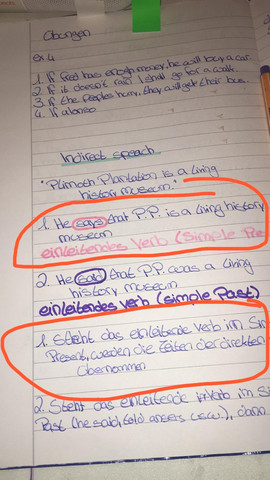 Übungen
ex 4
1. If Fred has enough money, he will buy a car
2. If it doesn't rain, I shall go for a walk
3. If the peoples hurry, they will get their bus.
4. If
Indirect speech
"Plimoth Plantation is a living
history museum."
1. He says that P.P. is a living history
museum
einleitendes Verb (Simple Pre
2. He said that P.P. was a living
history museum
einleitendes Verb (Simple Past)
1. Steht das einleitende Verb im Sim
Present, werden die Zeiten der direkten
übernommen
2. Steht das einleitende Verb im Si
Past (he said, told usw.), dann